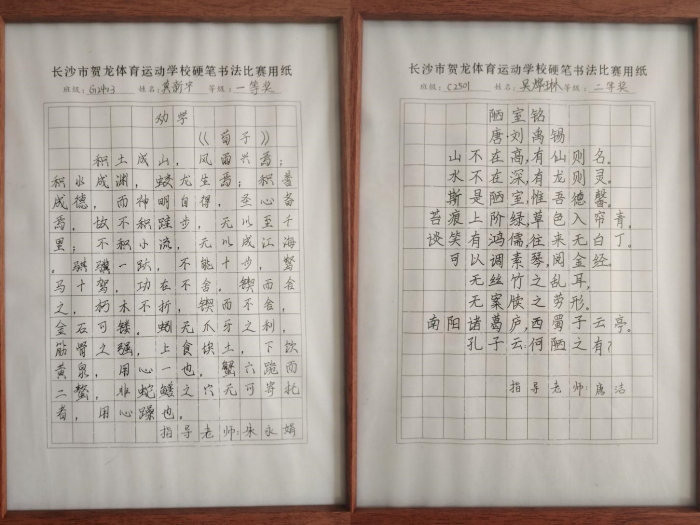 长沙市贺龙体育运动学校硬笔书法比赛用纸
班级：G2403 姓名：黄新宇 等级：一等奖
劝学
《荀子》
积土成山，风雨兴焉；
积水成渊，蛟龙生焉；积善
成德，而神明自得，圣心备
焉，故不积跬步，无以至千
里；不积小流，无以成江海
，骐骥一跃，不能十步，驽
马十驾，功在不舍，锲而舍
之，朽木不折，锲而不舍，
金石可镂，蚓无爪牙之利，
筋骨之强，上食埃土，下饮
黄泉，用心一也，蟹六跪而
二螯，非蛇蟮之穴无可寄托
者，用心躁也。
指导老师：朱永娟
长沙市贺龙体育运动学校硬笔书法比赛用纸
班级：C2501 姓名：吴烨琳 等级：二等奖
陋室铭
唐·刘禹锡
山不在高，有仙则名。
水不在深，有龙则灵。
斯是陋室，惟吾德馨。
苔痕上阶绿，草色入帘青。
谈笑有鸿儒，往来无白丁。
可以调素琴，阅金经。
无丝竹之乱耳，
无案牍之劳形。
南阳诸葛庐，西蜀子云亭。
孔子云：何陋之有？
指导老师：唐洁